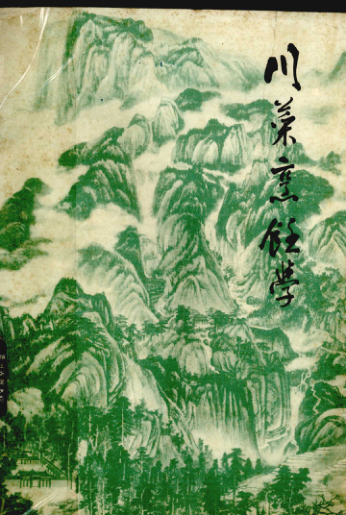 川菜烹饪学